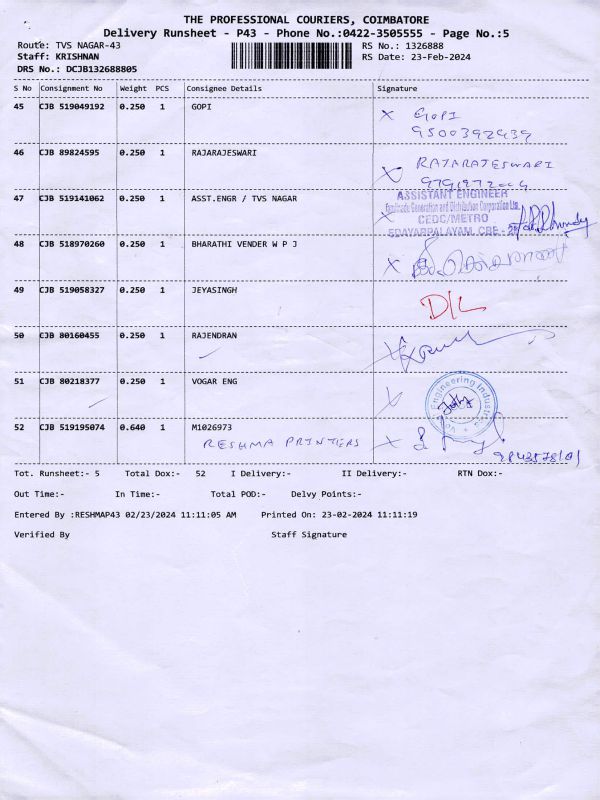 THE PROFESSIONAL COURIERS, COIMBATORE
Delivery Runsheet - P43 - Phone No.:0422-3505555 - Page No.:5
Route: TVS NAGAR-43 RS No.: 1326888
Staff: KRISHNAN RS Date: 23-Feb-2024
DRS No.: DCJB132688805
S No Consignment No Weight PCS Consignee Details Signature
45 CJB 519049192 0.250 1 GOPI GOPI
9500392439
46 CJB 89824595 0.250 1 RAJARAJESWARI RAJARAJESWARI
47 CJB 519141062 0.250 1 ASST.ENGR / TVS NAGAR ASSISTANT ENGINEER
Tamilnadu Generation and Distribution Corporation Ltd.
CEDC/METRO
EDAYARPALAYAM, CBE -
48 CJB 518970260 0.250 1 BHARATHI VENDER W P J
49 CJB 519058327 0.250 1 JEYASINGH D/L
50 CJB 80160455 0.250 1 RAJENDRAN
51 CJB 80218377 0.250 1 VOGAR ENG Engineering Industries
52 CJB 519195074 0.640 1 M1026973
RESHMA PRINTERS
Tot. Runsheet:- 5 Total Dox:- 52 I Delivery:- II Delivery:- RTN Dox:-
Out Time:- In Time:- Total POD:- Delvy Points:-
Entered By :RESHMAP43 02/23/2024 11:11:05 AM Printed On: 23-02-2024 11:11:19
Verified By Staff Signature